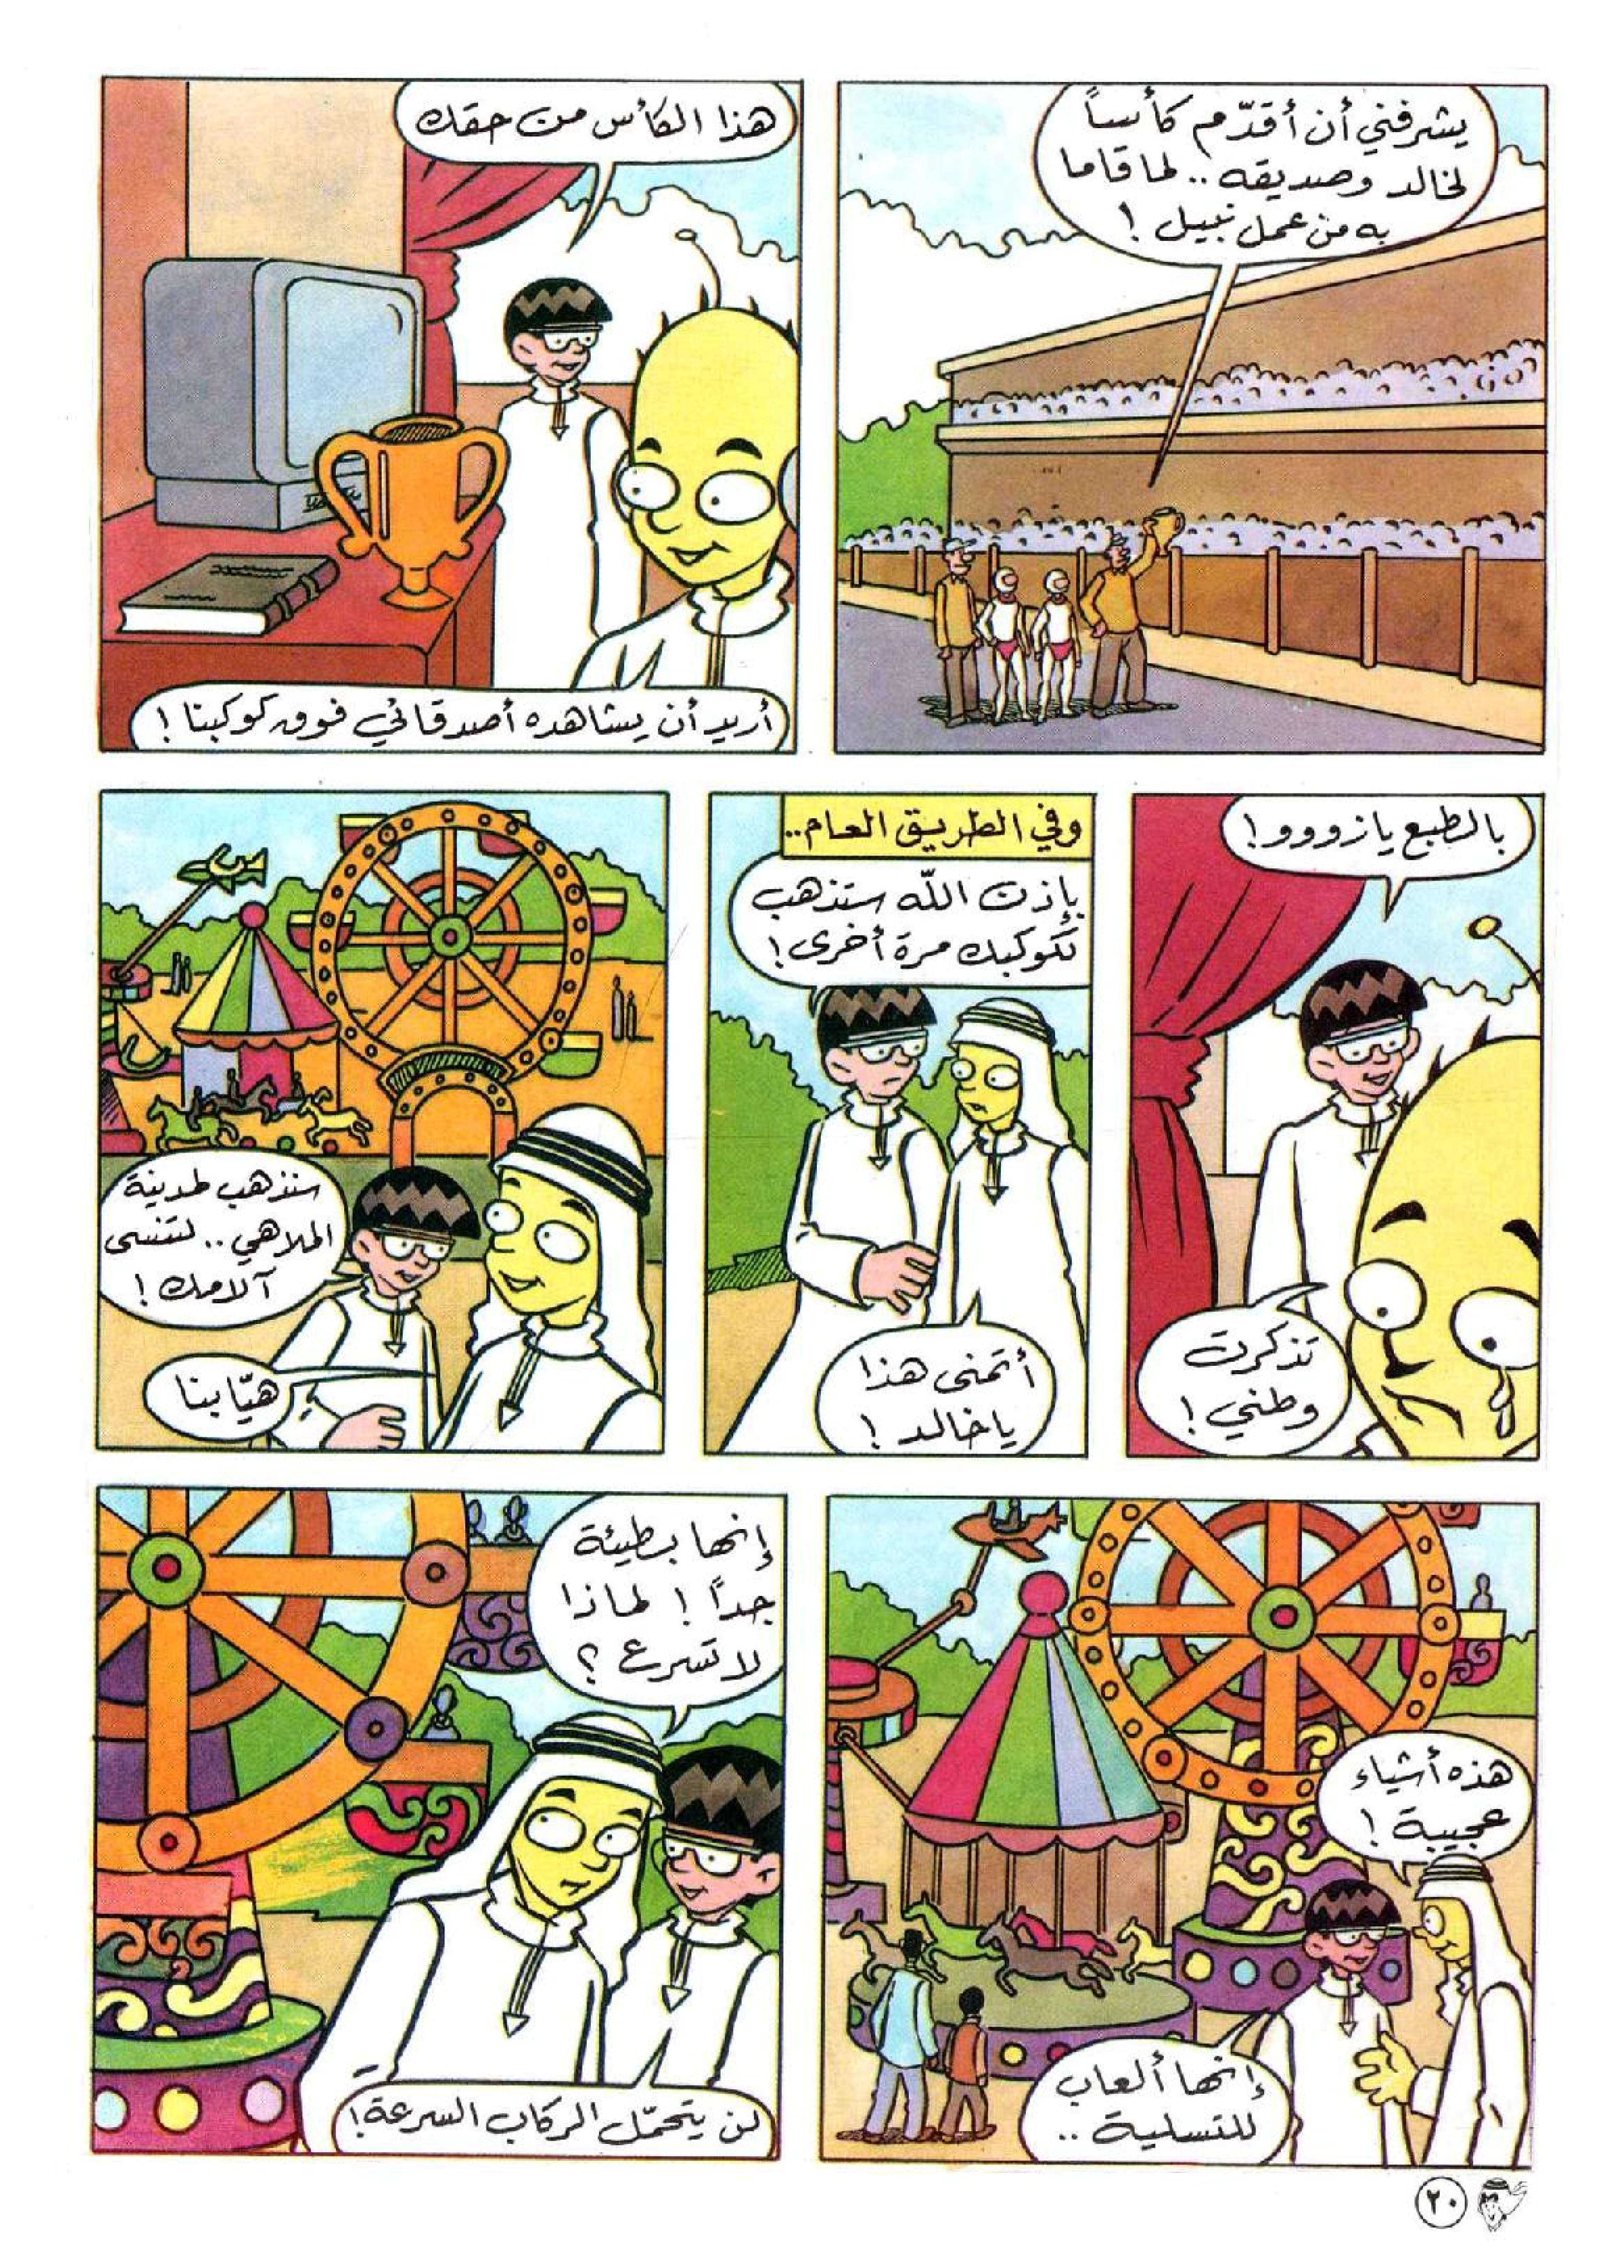 يشرفني أن أقدّم كأساً
لخالد وصديقه .. لما قاما
به من عمل نبيل !
هذا الكأس من حقك
أريد أن يشاهده أصدقائي فوق كوكبنا !
بالطبع يا زووو !
تذكرت
وطني !
وفي الطريق العام..
بإذن الله ستذهب
لكوكبك مرة أخرى !
أتمنى هذا
يا خالد !
سنذهب لمدينة
الملاهي .. لتنسى
آلامك !
هيّا بنا
هذه أشياء
عجيبة !
إنها ألعاب
للتسلية ..
إنها بطيئة
جداً ! لماذا
لا تسرع ؟
لن يتحمّل الركاب السرعة !
٢٠